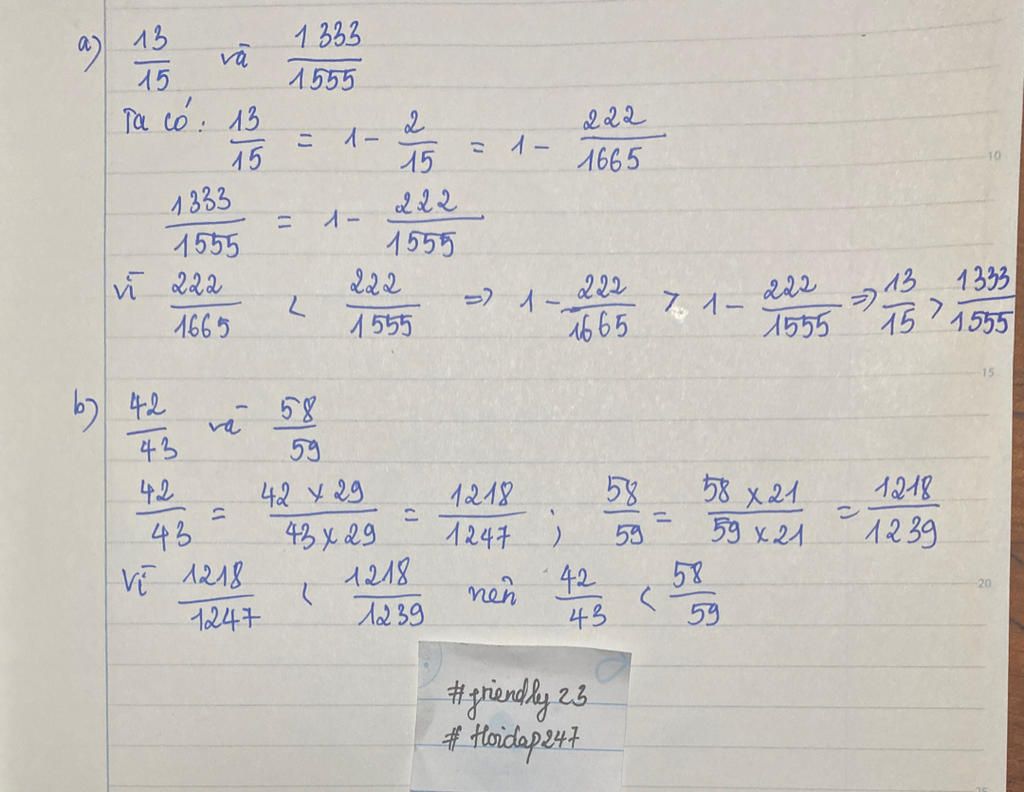 a) 13/15 và 1333/1555
Ta có: 13/15 = 1 - 2/15 = 1 - 222/1665
1333/1555 = 1 - 222/1555
Vì 222/1665 < 222/1555 => 1 - 222/1665 > 1 - 222/1555 => 13/15 > 1333/1555
b) 42/43 và 58/59
42/43 = 42 x 29/43 x 29 = 1218/1247 ; 58/59 = 58 x 21/59 x 21 = 1218/1239
Vì 1218/1247 < 1218/1239 nên 42/43 < 58/59
#friendly23
#Hoidap247
10
15
20
25